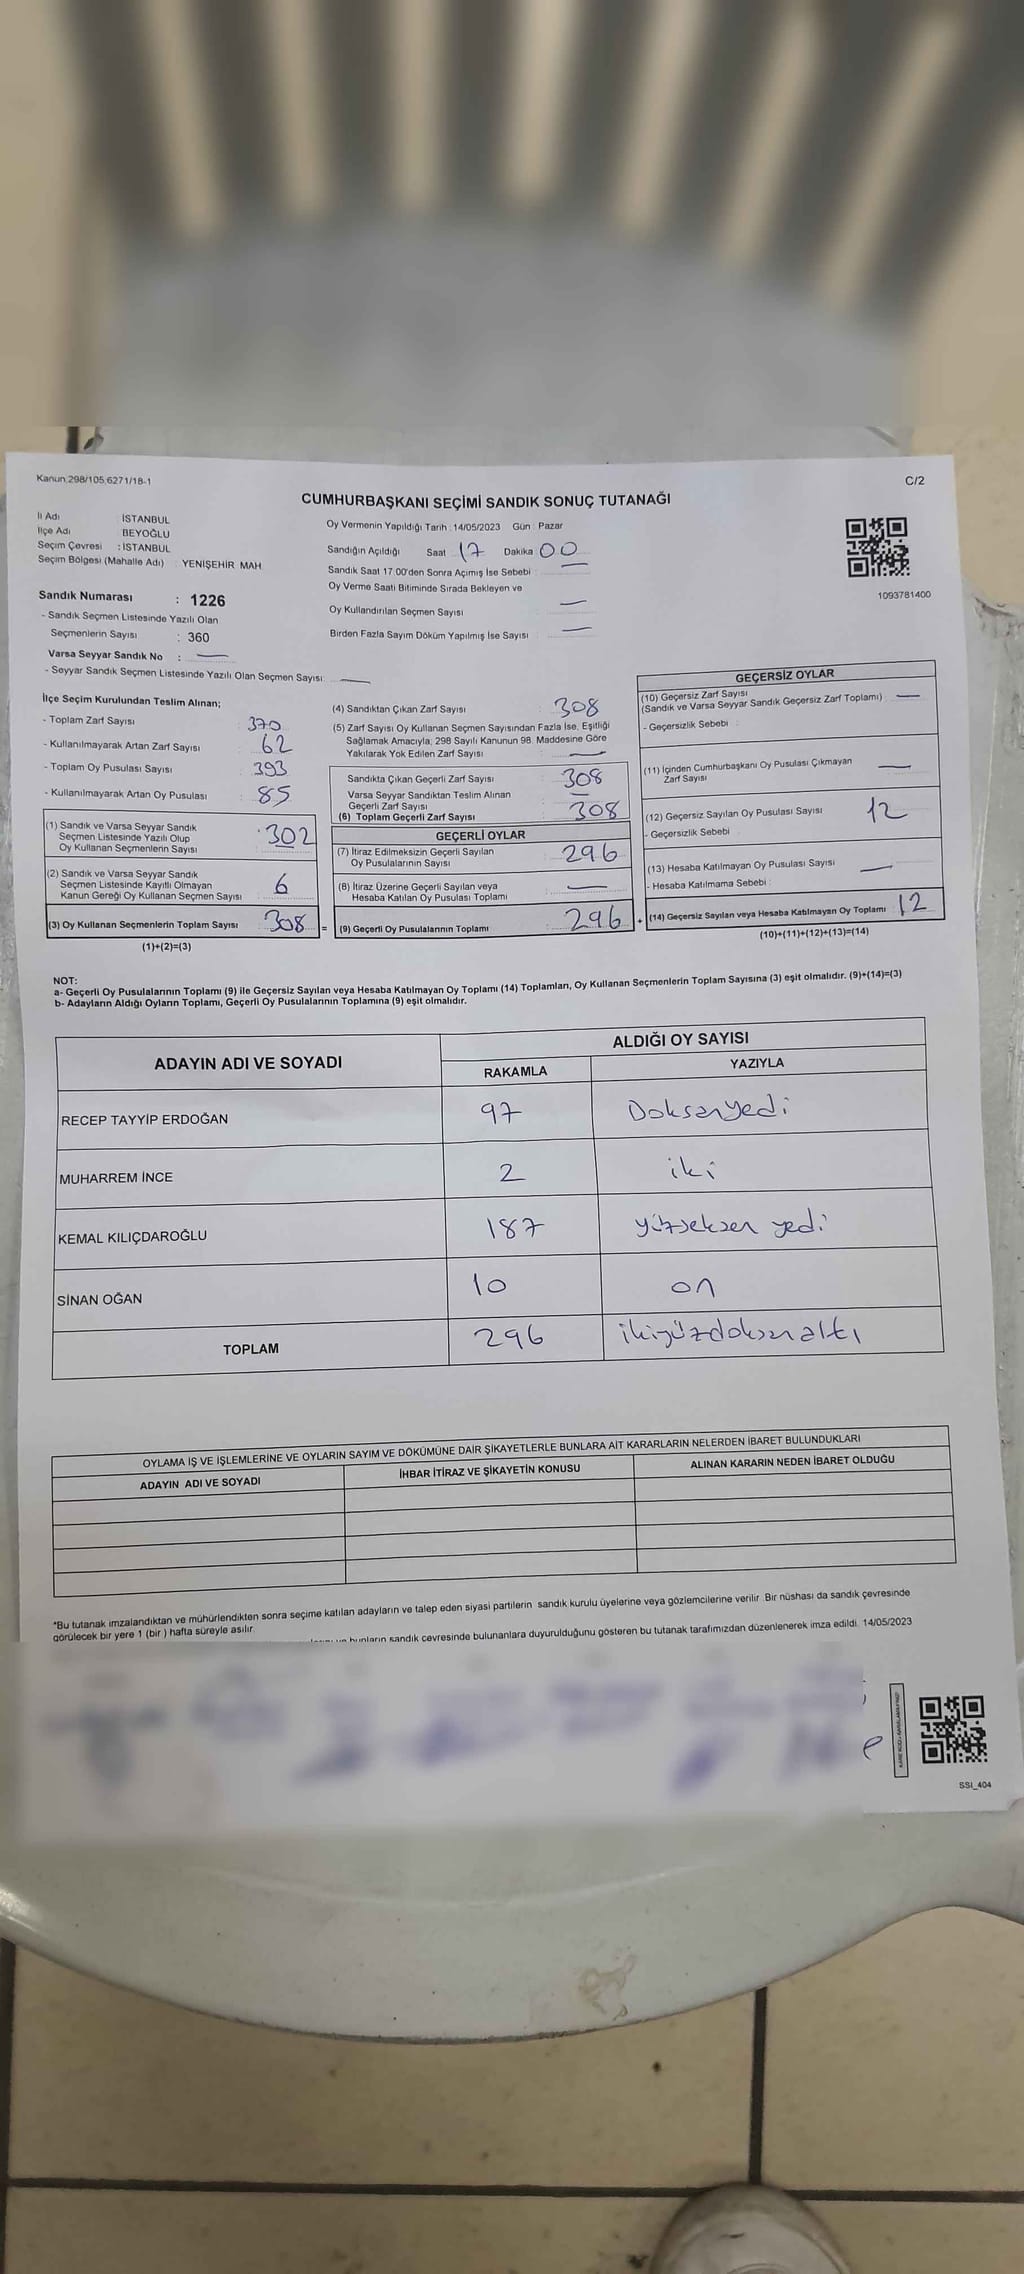 Kanun;298/105,6271/18-1
C/2
CUMHURBAŞKANI SEÇİMİ SANDIK SONUÇ TUTANAĞI
İl Adı İSTANBUL
İlçe Adı BEYOĞLU
Seçim Çevresi : İSTANBUL
Seçim Bölgesi (Mahalle Adı) YENİŞEHİR MAH.
Oy Vermenin Yapıldığı Tarih : 14/05/2023 Gün : Pazar
Sandığın Açıldığı Saat 17 Dakika 00
Sandık Saat 17.00'den Sonra Açımış İse Sebebi : —
Oy Verme Saati Bitiminde Sırada Bekleyen ve
Oy Kullandırılan Seçmen Sayısı —
Birden Fazla Sayım Döküm Yapılmış İse Sayısı : —
1093781400
Sandık Numarası : 1226
- Sandık Seçmen Listesinde Yazılı Olan
Seçmenlerin Sayısı : 360
Varsa Seyyar Sandık No : —
- Seyyar Sandık Seçmen Listesinde Yazılı Olan Seçmen Sayısı: —
İlçe Seçim Kurulundan Teslim Alınan;
- Toplam Zarf Sayısı : 370
- Kullanılmayarak Artan Zarf Sayısı : 62
- Toplam Oy Pusulası Sayısı : 393
- Kullanılmayarak Artan Oy Pusulası : 85
(1) Sandık ve Varsa Seyyar Sandık
Seçmen Listesinde Yazılı Olup
Oy Kullanan Seçmenlerin Sayısı : 302
(2) Sandık ve Varsa Seyyar Sandık
Seçmen Listesinde Kayıtlı Olmayan
Kanun Gereği Oy Kullanan Seçmen Sayısı : 6
(3) Oy Kullanan Seçmenlerin Toplam Sayısı : 308 =
(1)+(2)=(3)
(4) Sandıktan Çıkan Zarf Sayısı : 308
(5) Zarf Sayısı Oy Kullanan Seçmen Sayısından Fazla İse, Eşitliği
Sağlamak Amacıyla; 298 Sayılı Kanunun 98. Maddesine Göre
Yakılarak Yok Edilen Zarf Sayısı : —
Sandıkta Çıkan Geçerli Zarf Sayısı : 308
Varsa Seyyar Sandıktan Teslim Alınan
Geçerli Zarf Sayısı : —
(6) Toplam Geçerli Zarf Sayısı : 308
GEÇERLİ OYLAR
(7) İtiraz Edilmeksizin Geçerli Sayılan
Oy Pusulalarının Sayısı : 296
(8) İtiraz Üzerine Geçerli Sayılan veya
Hesaba Katılan Oy Pusulası Toplamı : —
(9) Geçerli Oy Pusulalarının Toplamı : 296 +
GEÇERSİZ OYLAR
(10) Geçersiz Zarf Sayısı
(Sandık ve Varsa Seyyar Sandık Geçersiz Zarf Toplamı) —
- Geçersizlik Sebebi :
(11) İçinden Cumhurbaşkanı Oy Pusulası Çıkmayan
Zarf Sayısı —
(12) Geçersiz Sayılan Oy Pusulası Sayısı 12
- Geçersizlik Sebebi :
(13) Hesaba Katılmayan Oy Pusulası Sayısı —
- Hesaba Katılmama Sebebi :
(14) Geçersiz Sayılan veya Hesaba Katılmayan Oy Toplamı 12
(10)+(11)+(12)+(13)=(14)
NOT:
a- Geçerli Oy Pusulalarının Toplamı (9) ile Geçersiz Sayılan veya Hesaba Katılmayan Oy Toplamı (14) Toplamları, Oy Kullanan Seçmenlerin Toplam Sayısına (3) eşit olmalıdır. (9)+(14)=(3)
b- Adayların Aldığı Oyların Toplamı, Geçerli Oy Pusulalarının Toplamına (9) eşit olmalıdır.
ADAYIN ADI VE SOYADI
ALDIĞI OY SAYISI
RAKAMLA YAZIYLA
RECEP TAYYİP ERDOĞAN 97 Doksanyedi
MUHARREM İNCE 2 iki
KEMAL KILIÇDAROĞLU 187 yüzseksen yedi
SİNAN OĞAN 10 on
TOPLAM 296 ikiyüzdoksanaltı
OYLAMA İŞ VE İŞLEMLERİNE VE OYLARIN SAYIM VE DÖKÜMÜNE DAİR ŞİKAYETLERLE BUNLARA AİT KARARLARIN NELERDEN İBARET BULUNDUKLARI
ADAYIN ADI VE SOYADI İHBAR İTİRAZ VE ŞİKAYETİN KONUSU ALINAN KARARIN NEDEN İBARET OLDUĞU
*Bu tutanak imzalandıktan ve mühürlendikten sonra seçime katılan adayların ve talep eden siyasi partilerin sandık kurulu üyelerine veya gözlemcilerine verilir. Bir nüshası da sandık çevresinde
görülecek bir yere 1 (bir ) hafta süreyle asılır.
bunların sandık çevresinde bulunanlara duyurulduğunu gösteren bu tutanak tarafımızdan düzenlenerek imza edildi. 14/05/2023
SSI_404